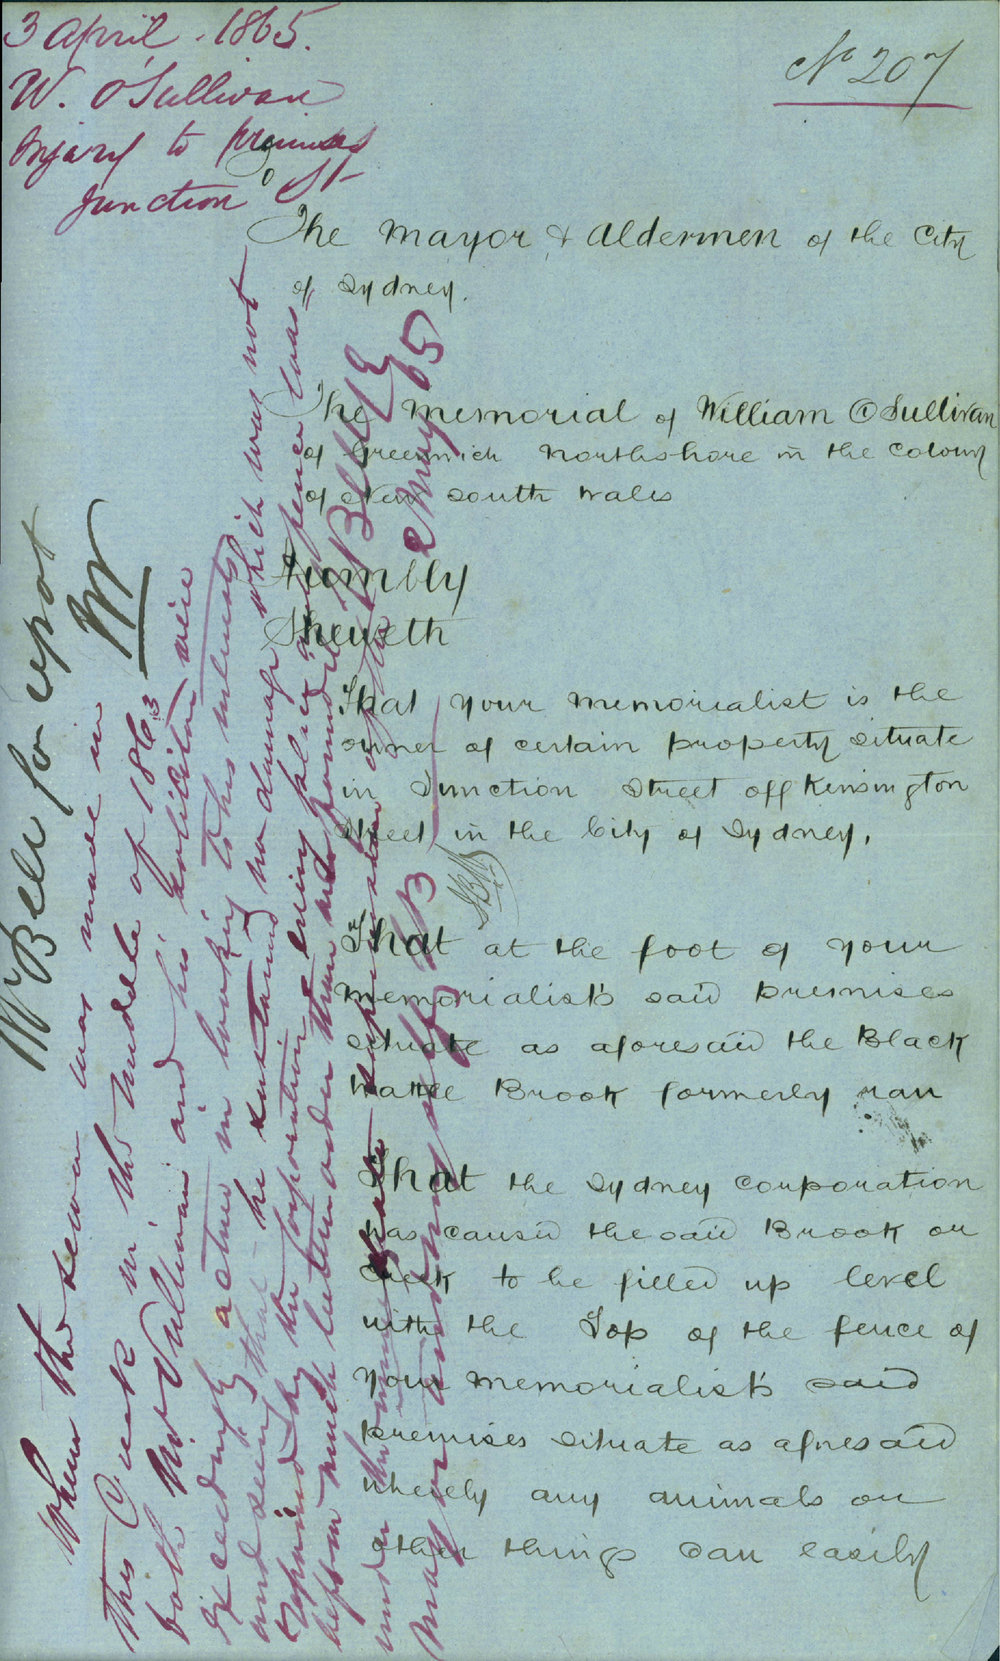 3 April. 1865.
W. O'Sullivan
Injury to premises
Junction St
No 207
To
The Mayor & Aldermen of the City
of Sydney.
The Memorial of William O'Sullivan
of Greenwich Northshore in the Colony
of New South Wales
Humbly
Sheweth
That your Memorialist is the
owner of certain property situate
in Junction Street off Kensington
Street in the City of Sydney.
That at the foot of your
Memorialist's said premises
situate as aforesaid the Black
Wattle Brook formerly ran
That the Sydney Corporation
has caused the said Brook or
Creek to be filled up level
with the Top of the fence of
your Memorialist's said
premises situate as aforesaid
whereby any animals or
other things can easily
Mr Bell for report
When the sewer was made in
this Creek in the middle of 1863
both Mr O'Sullivan and his Solicitor were
exceedingly active in looking to his interests
and seeing that he sustained no damage which was not
repaired by the Corporation, every place and fence was
left in much better order than we found it
under the immediate supervision of the
May or and myself
Bell CE
2 May 65